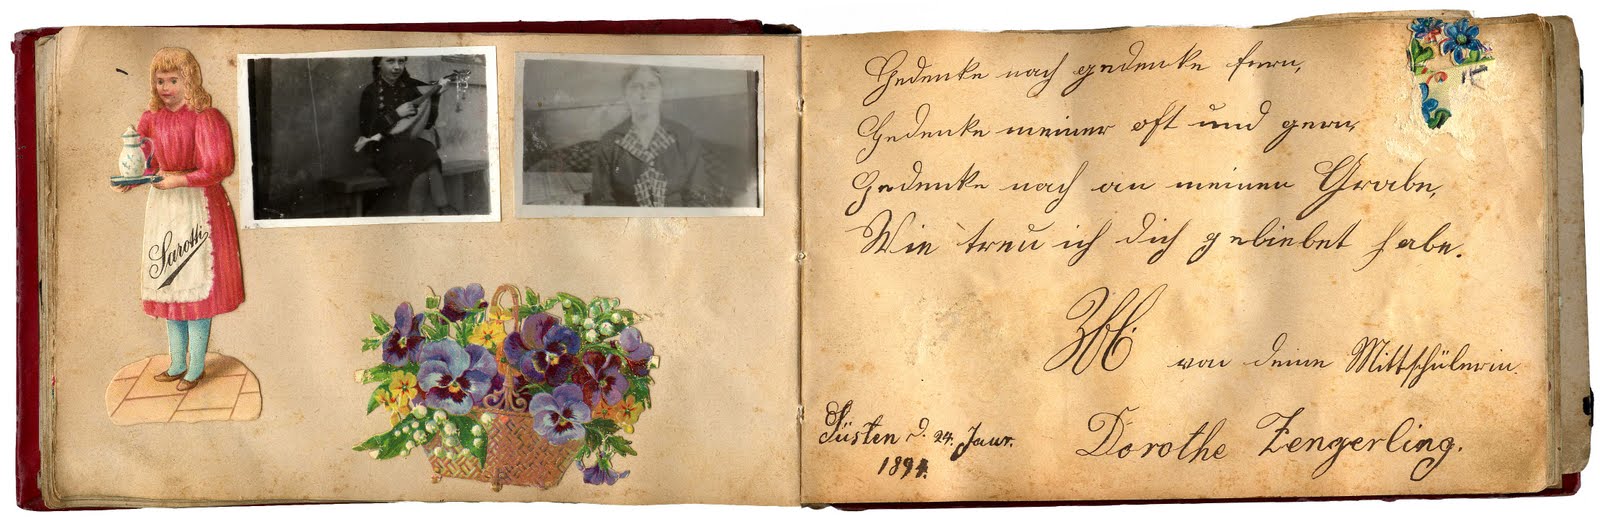 Sarotti
Gedenke nach gedenke fern,
Gedenke meiner oft und gern,
Gedenke noch an meinen Grabe,
Wie treu ich dich geliebet habe.
von deine Mittschülerin.
Güsten d. 24. Janr.
1894.
Dorothe Zengerling.